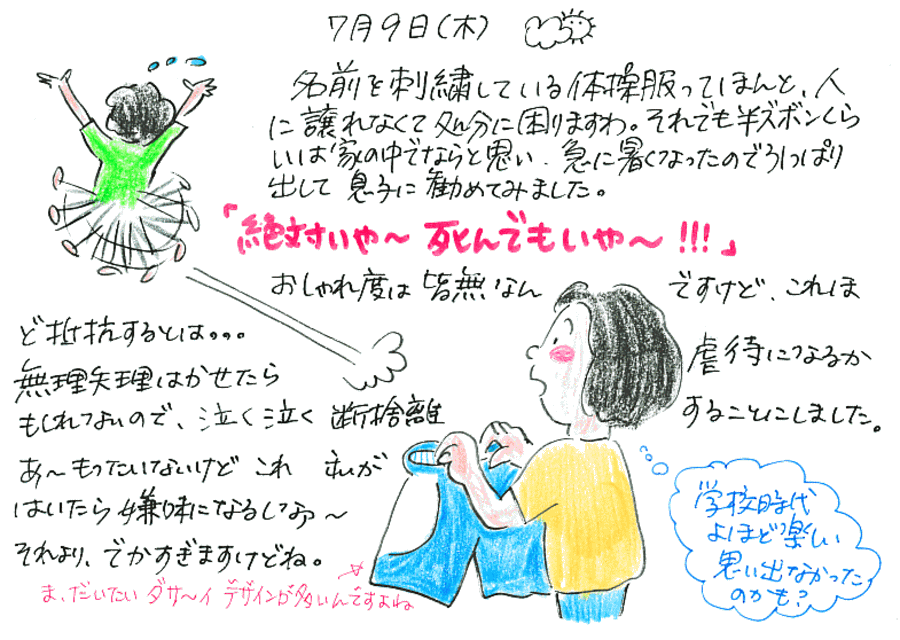 7月9日(木)
名前を刺繍している体操服ってほんと、人
に譲れなくて処分に困りますわ。それでも半ズボンくら
いは家の中でならと思い、急に暑くなったのでひっぱり
出して息子に勧めてみました。
「絶対いや〜 死んでもいや〜 !!!」
おしゃれ度は皆無なんですけど、これほ
ど抵抗するとは。。。
無理矢理はかせたら虐待になるか
もしれないので、泣く泣く断捨離することにしました。
あ〜もったいないけどこれ私が
はいたら嫌味になるしなぁ〜
それより、でかすぎますけどね。
ま、だいたいダサ〜イデザインが多いんですよね
学校時代
よほど楽しい
思い出なかった
のかも?